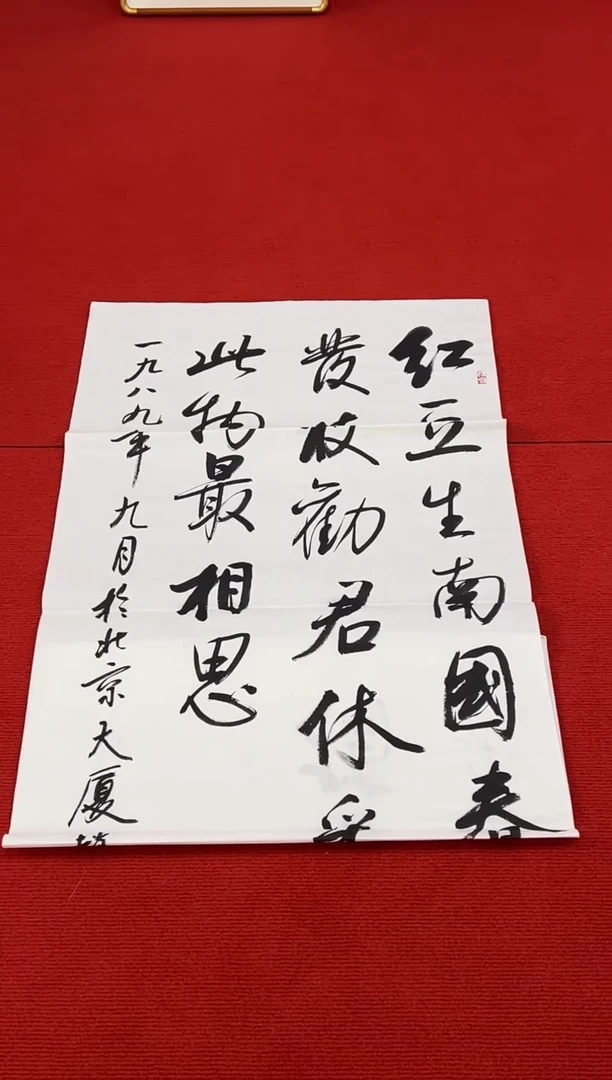 红豆生南國春
發枝勸君休采
此物最相思
一九八九年九月於北京大厦